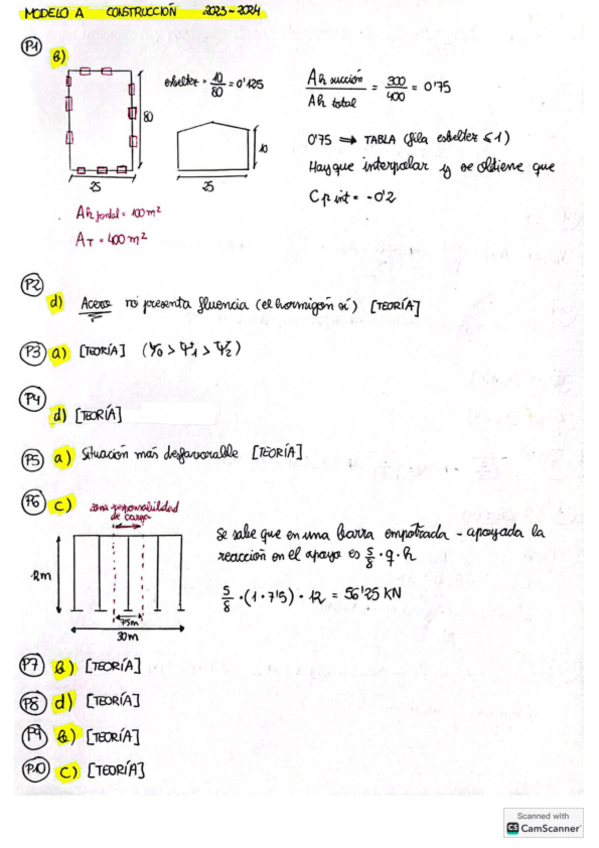 MODELO A CONSTRUCCIÓN 2023-2024
P1
b)
esbeltez = 10/80 = 0'125
Ah succión / Ah total = 300/400 = 0'75
80
10
25
25
0'75 ⟹ TABLA (fila esbeltez ≤ 1)
Hay que interpolar y se obtiene que
Cp int = -0'2
Ah frontal = 100 m²
A_T = 400 m²
P2
d) Acero no presenta fluencia (el hormigón sí) [TEORÍA]
P3 a) [TEORÍA] (Ψ0 > Ψ1 > Ψ2)
P4
d) [TEORÍA]
P5 a) Situación más desfavorable [TEORÍA]
P6 c)
zona responsabilidad
de carga
Se sabe que en una barra empotrada - apoyada la
reacción en el apoyo es 5/8 · q · h
12m
5/8 · (1 · 7'5) · 12 = 56'25 KN
7'5m
30m
P7 b) [TEORÍA]
P8 d) [TEORÍA]
P9 b) [TEORÍA]
P10 c) [TEORÍA]
Scanned with
CS CamScanner